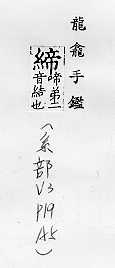 龍龕手鑑
締
啼弟二
音結也
(糸部
V3
P19
A5)